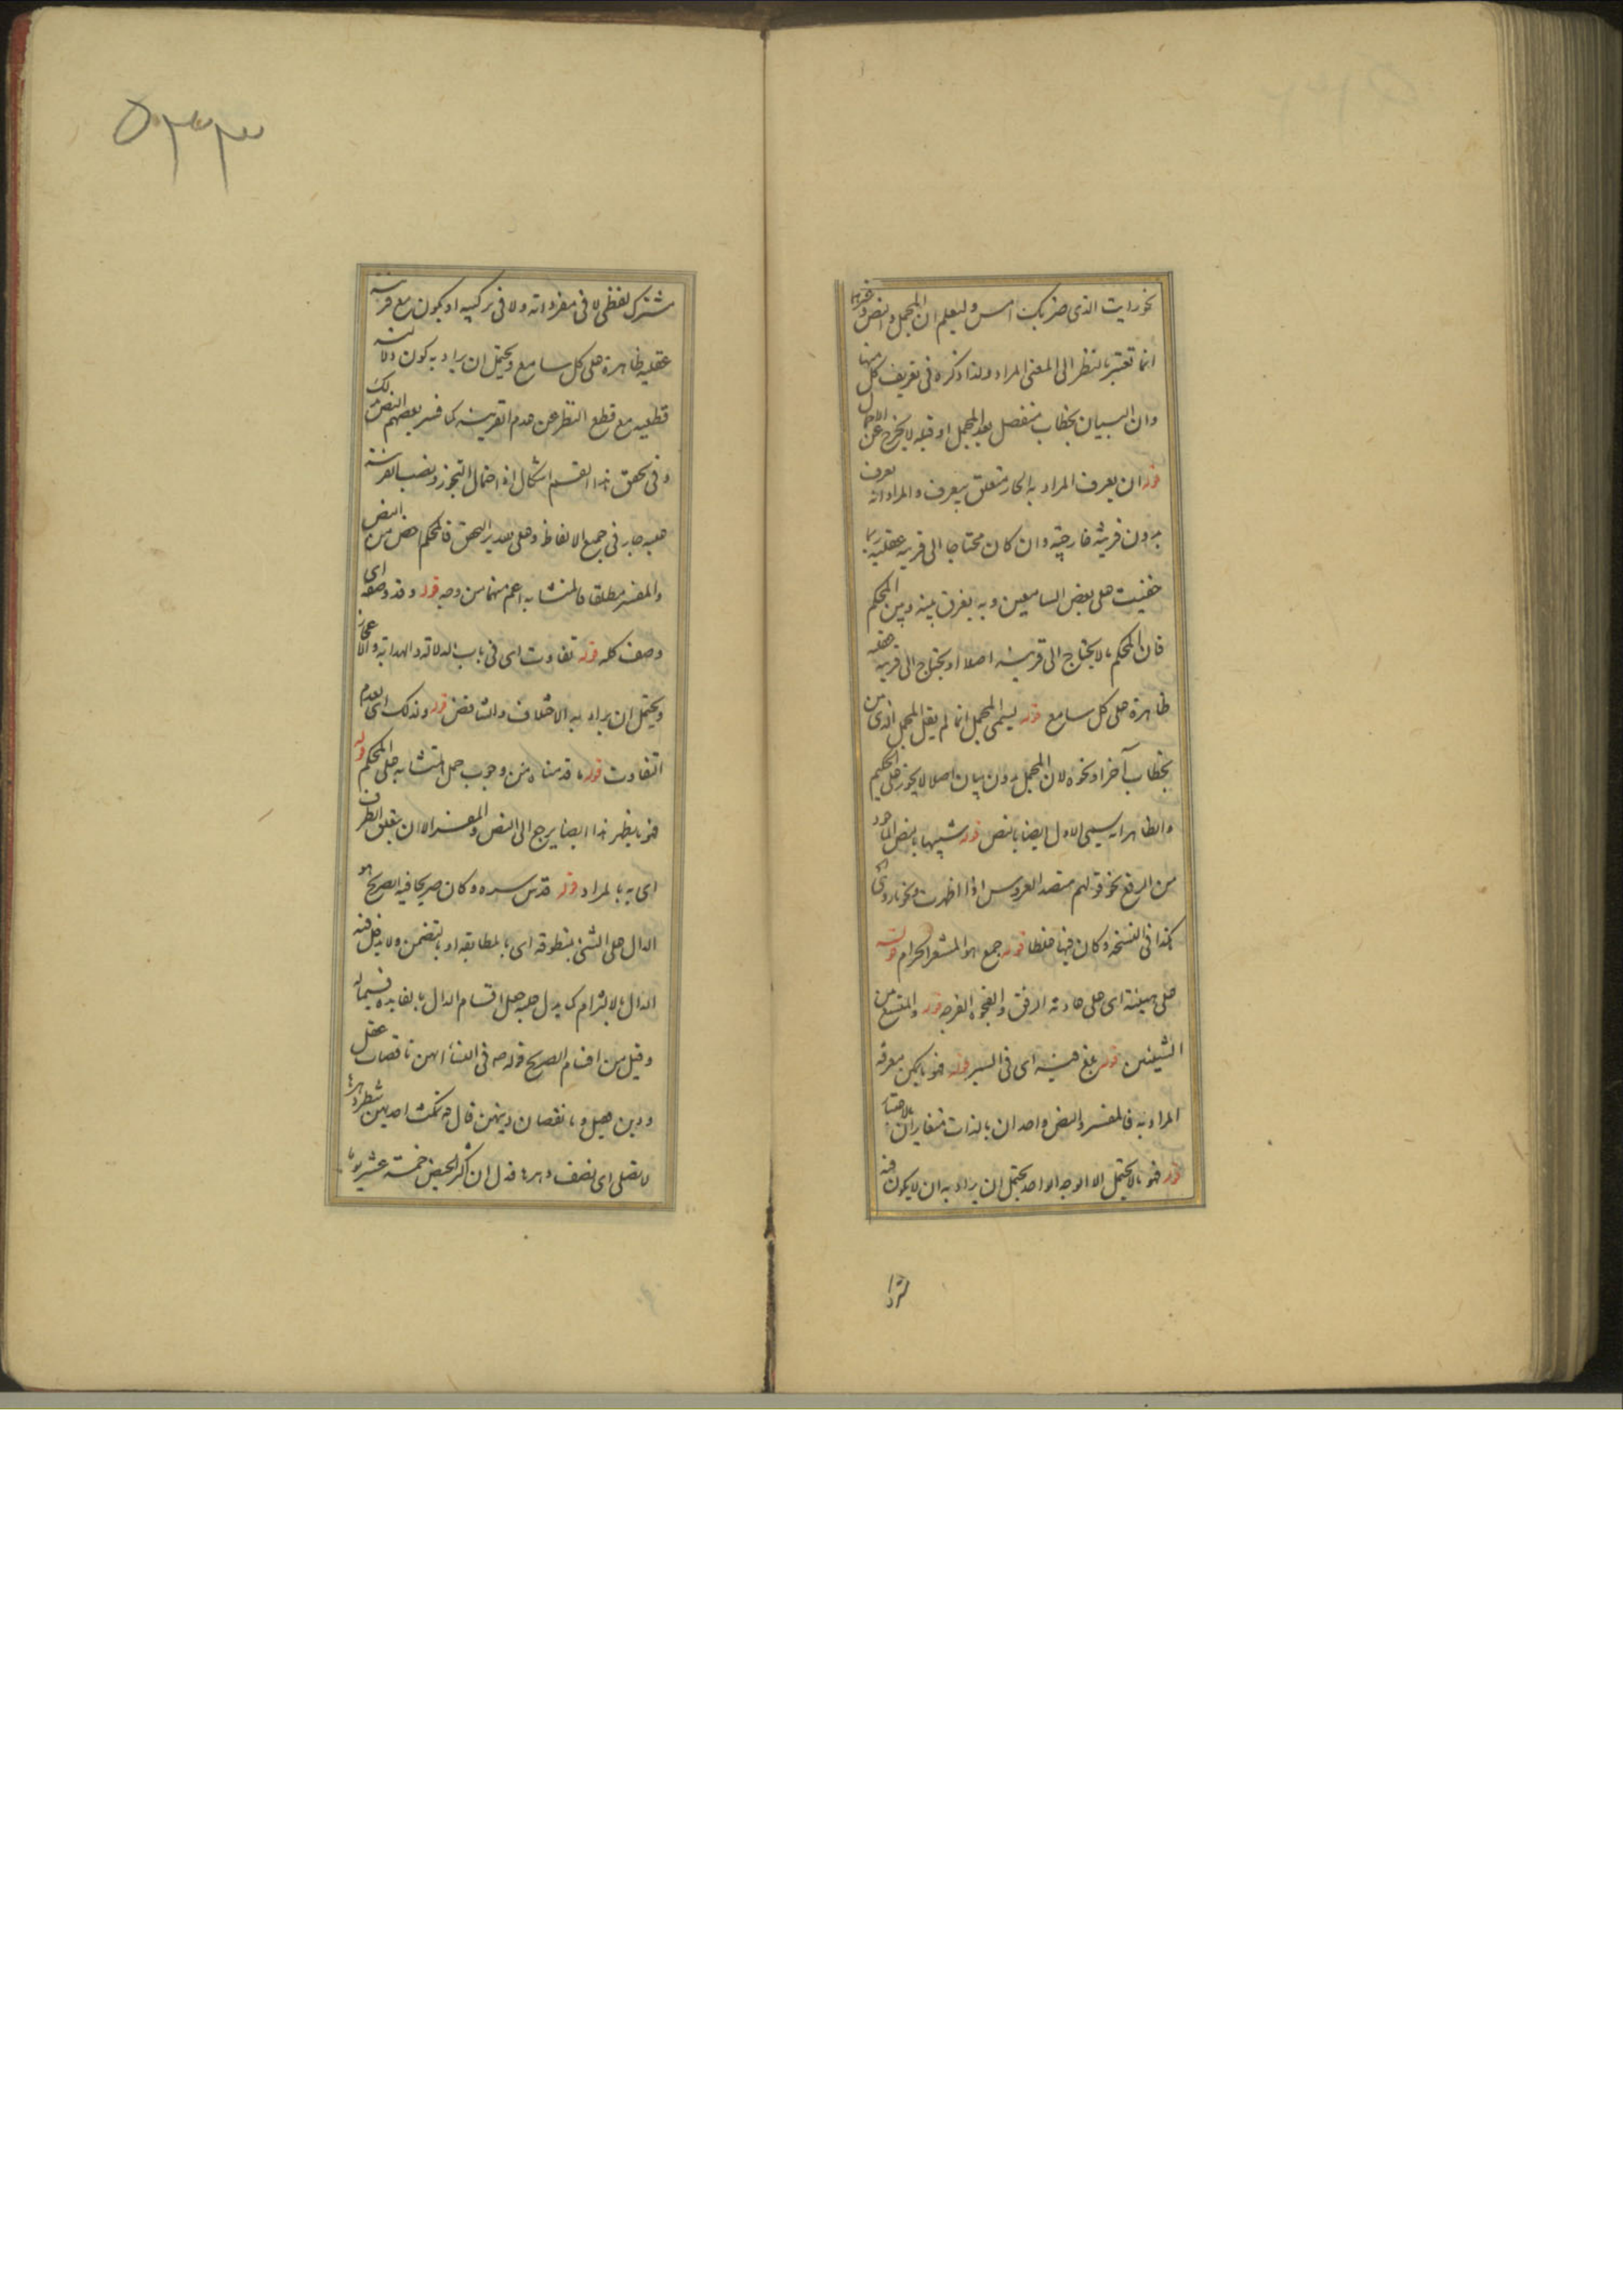 نحو رايت الذى ضربك امس وليعلم ان المجمل والنص وغيرهما
انما تعتبر بالنظر الى المعنى المراد ولذا ذكره فى تعريف كل منها
وان البيان بخطاب منفصل بعد المجمل او قبله لا يخرج عن الاجمال
قوله ان يعرف المراد به الجار متعلق بيعرف والمراد انه يعرف
بدون قرينة خارجية وان كان محتاجا الى قرينه عقليه ربما
خفيت على بعض السامعين وبه يفرق بينه وبين المحكم
فان المحكم ما لا يحتاج الى قرينه اصلا او يحتاج الى قرينه عقليه
ظاهرة على كل سامع قوله يسمى المجمل انما لم يقل المجمل الذى من
بخطاب آخر او نحوه لان المجمل بدون بيان اصلا لا يجوز على الحكيم
والظاهر انه يسمى الاول ايضا بالنص قوله شبيها بالنص الماخوذ
من الرفع نحو قولهم منصه العروس اذا اظهرت نحو ما روى
كذا فى النسخه وكان فيها غلطا قوله جمع هو المشعر الحرام قوله
على هينته اى على عادته الرفق والفجوه الفرجه قوله والمتسع من
الشيئين قوله نص فيه اى فى السير قوله فهو ما يمكن معرفه
المراد به فالمفسر والنص واحد ان بالذات متغايران بالاعتبار
قوله فهو ما لا يحتمل الا الوجه الواحد يحتمل ان يراد به ان لا يكون فيه
۵۰۳۳
مشترك لفظى لا فى مفرداته ولا فى تركيبه او يكون مع قرينه
عقليه ظاهرة على كل سامع ويحتمل ان يراد به كون دلالته
قطعيه مع قطع النظر عن عدم القرينه كما فسر بعضهم النص بذلك
وفى تحقق هذا القسم اشكال اذ احتمال التجوز ونصب القرينه
عليه جار فى جميع الالفاظ وعلى تقدير التحقق فالمحكم اخص من النص
والمفسر مطلقا فالمتشابه اعم منهما من وجه قوله وقد وصفه اى
وصف كله قوله تفاوت اى فى باب الدلاله والهدايه والاعجاز
ويحتمل ان يراد به الاختلاف والتناقض قوله ولذلك اى لعدم
التفاوت قوله ما قدمناه من وجوب حمل المتشابه على المحكم قوله
فهو ما يظهر هذا ايضا يرجع الى النص والمفسر الا ان يتعلق الظرف
اى به بالمراد قوله قدس سره وكان صريحا فيه الصريح هو
الدال على الشئ بمنطوقه اى بالمطابقه او بالتضمن ولا يدخل فيه
الدال بالالتزام كما يدل عليه جعل اقسام الدال بالفايده قسيما له
وقيل من اقسام الصريح قوله ص فى النساء انهن ناقصات عقل
ودين قيل وما نقصان دينهن قال ص تمكث احديهن شطر دهرها
لا تصلى اى نصف دهرها فدل ان اكثر الحيض خمسة عشر يوما